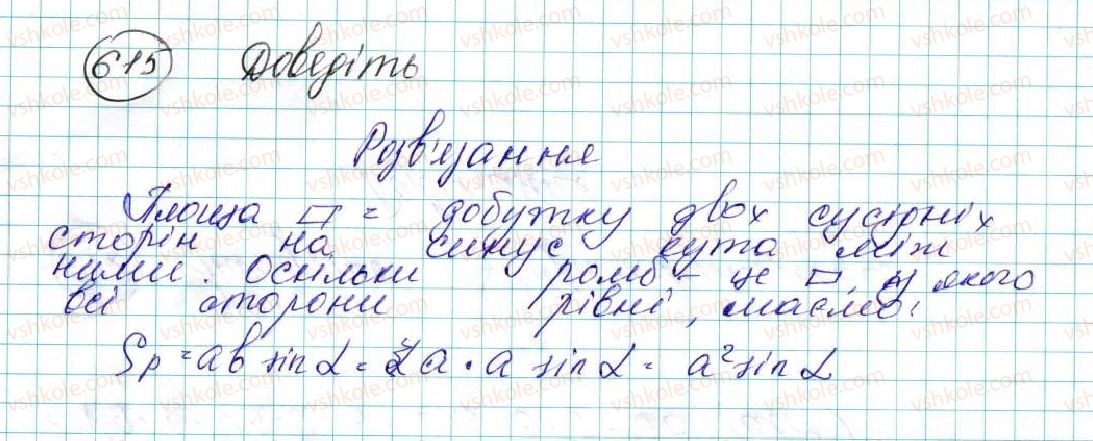 615 Доведіть
Розв'язання
Площа ▱ = добутку двох сусідніх
сторін на синус кута між
ними. Оскільки ромб - це ▱, у якого
всі сторони рівні, маємо:
Sр = ab sin α = a · a sin α = a² sin α
vshkole.com